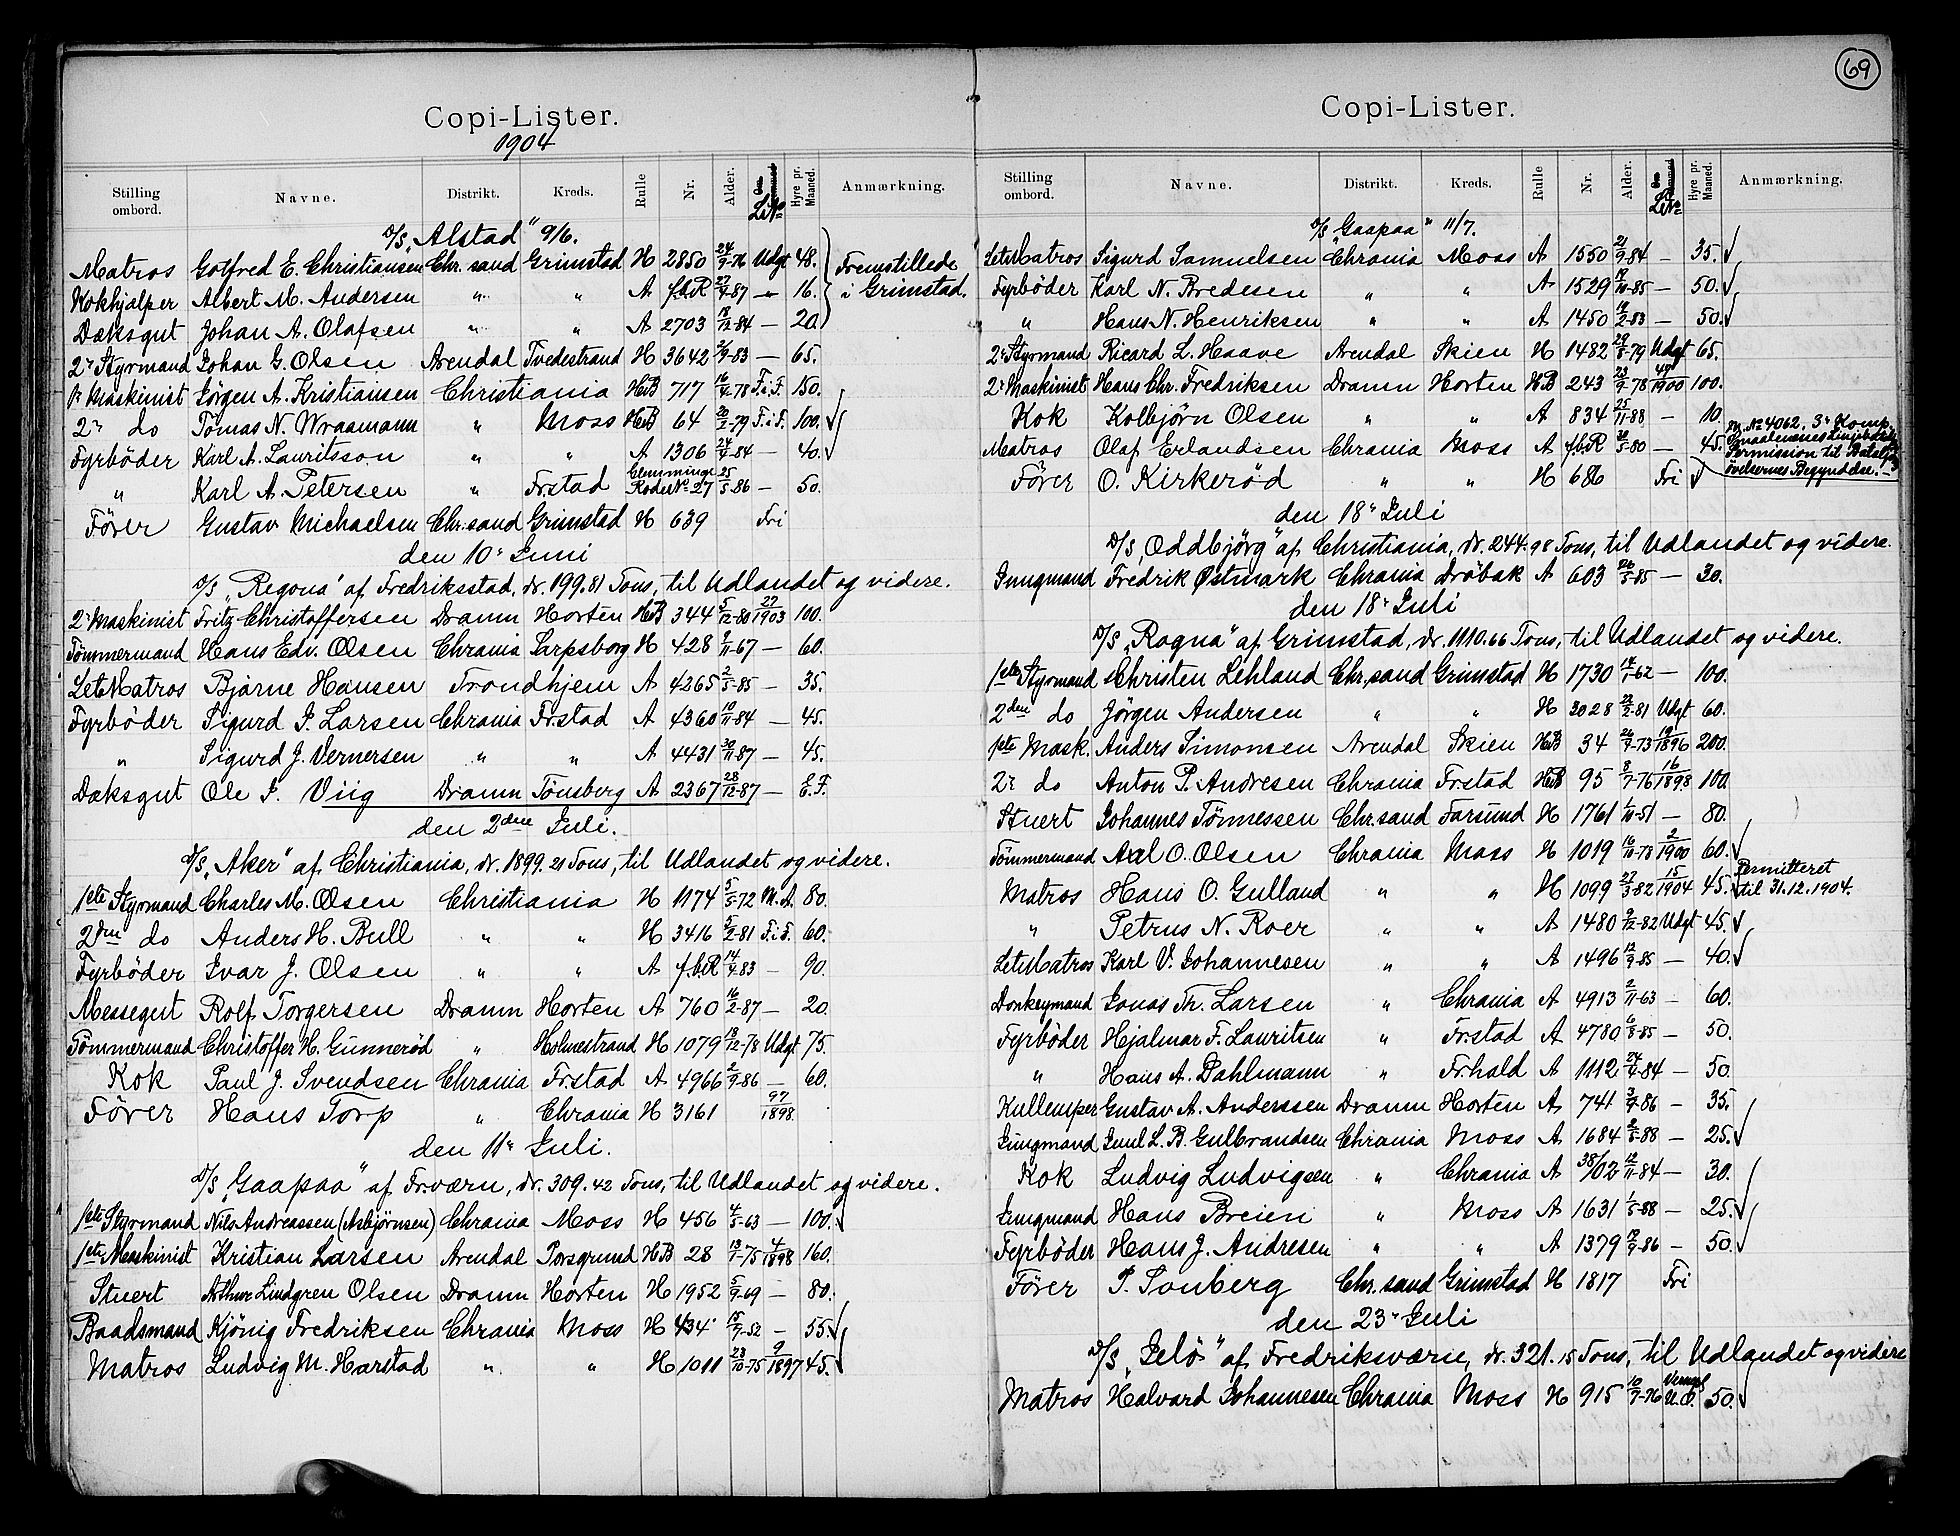 Copi-Lister.
1904
Stilling ombord. Navne. Distrikt. Kreds. Rulle Nr. Alder. Hyre pr. Maaned. Anmærkning.
D/S „Alstad" 9/6.
Matros Gotfred E. Christiansen Chr.sand Grimstad H 2850 24/9-76 Udgt 48. Fremstillede
Kokhjælper Albert M. Andersen " " A f.b.R 27/4-87 " 16. i Grimstad.
Dæksgut Johan A. Olafsen " " A 2703 18/12-84 — 20.
2n Styrmand Johan G. Olsen Arendal Tvedestrand H 3642 2/9-83 — 65.
1n Maskinist Jörgen A. Kristiansen Christiania HB 717 16/4-78 F.i.F. 150.
2n do Tomas N. Wraamann " Moss HB 64 20/2-79 F.i.F. 100.
Fyrböder Karl A. Lauritsson " " A 1306 24/4-84 — 40.
" Karl A. Petersen " Fr.stad Glemminge Rode No 27 25/5-86 — 50.
Förer Gustav Michaelsen Chr.sand Grimstad H 639 Fri
den 10n Juni
D/S „Regona" af Fredriksstad, dr. 199.81 Tons, til Udlandet og videre.
2n Maskinist Fritz Christoffersen Dramn Horten HB 344 5/12-80 27/1903 100.
Tömmermand Hans Edv. Olsen Chrania Sarpsborg H 428 9/11-67 — 60.
Let Matros Bjarne Hansen Trondhjem A 4265 2/5-85 — 35.
Fyrböder Sigurd J. Larsen Chrania Fr.stad A 4360 10/11-84 — 45.
" Sigurd J. Vernersen " " A 4431 30/11-87 — 45.
Dæksgut Ole J. Viig Dramn Tönsberg A 2367 28/12-87 — E.F.
den 2den Juli.
D/S „Aker" af Christiania, dr. 1899.21 Tons, til Udlandet og videre.
1ste Styrmand Charles M. Olsen Christiania H 1174 5/5-72 M.A. 80.
2den do Anders H. Bull " " H 3416 5/2-81 F.i.F. 60.
Fyrböder Ivar J. Olsen " " A f.b.R 14/4-83 — 90.
Messegut Rolf Torgersen Dramn Horten A 760 16/2-87 — 20.
Tömmermand Christoffer H. Gunneröd " Holmestrand H 1079 18/12-78 Udgt 75.
Kok Paul J. Svendsen Chrania Fr.stad A 4966 2/9-86 — 60.
Förer Hans Torp " Chrania H 3161 97/1898
den 11n Juli.
D/S „Gaapaa" af Fr.værn, dr. 309.42 Tons, til Udlandet og videre.
1ste Styrmand Nils Andreassen (Asbjørnsen) Chrania Moss H 456 4/5-63 — 100.
1ste Maskinist Kristian Larsen Arendal Porsgrund HB 28 13/1-75 4/1898 160.
Stuert Arthur Lindgren Olsen Dramn Horten H 1952 5/9-69 — 80.
Baadsmand Kjönig Fredriksen Chrania Moss H 434 15/9-52 — 55.
Matros Ludvig M. Harstad " " H 1011 23/10-75 9/1897 45.
69
Copi-Lister.
Stilling ombord. Navne. Distrikt. Kreds. Rulle Nr. Alder. Hyre pr. Maaned. Anmærkning.
D/S „Gaapaa" 11/7.
Let Matros Sigurd Samuelsen Chrania Moss A 1550 21/9-84 — 35.
Fyrböder Karl N. Bredesen " " A 1529 19/10-85 — 50.
" Hans N. Henriksen " " A 1450 18/2-83 — 50.
2n Styrmand Ricard L. Haave Arendal Skien H 1482 29/8-79 Udgt 65.
2n Maskinist Hans Chr. Fredriksen Dramn Horten HB 243 23/9-78 49/1900 100.
Kok Kolbjörn Olsen " " A 834 25/11-88 — 10.
Matros Olaf Erlandsen Chrania Moss A f.b.R 30/5-80 — 45. No 4062, 3n Komp. Smaalenenes Linjebatl. Permission til Batalj. övelsernes Begyndelse.
Förer O. Kirkeröd " " H 686 Fri
den 18n Juli
D/S „Oddbjörg" af Christiania, dr. 244.98 Tons, til Udlandet og videre.
Jungmand Fredrik Østmark Chrania Dröbak A 603 26/5-85 — 30.
den 18n Juli
D/S „Ragna" af Grimstad, dr. 1110.66 Tons, til Udlandet og videre.
1ste Styrmand Christen Lehland Chr.sand Grimstad H 1730 14/1-62 — 100.
2den do Jörgen Andersen " " H 3028 22/2-81 Udgt 60.
1ste Mask. Anders Simonsen Arendal Skien HB 34 26/9-73 19/1896 200.
2n do Anton P. Andresen Chrania Fr.stad HB 95 8/7-76 16/1898 100.
Stuert Johannes Tönnessen Chr.sand Farsund H 1761 1/10-51 — 80.
Tömmermand Axel O. Olsen Chrania Moss H 1019 16/10-78 2/1900 60.
Matros Hans O. Gulland " " H 1099 27/3-82 15/1904 45. Permitteret til 31.12.1904.
" Petrus N. Roer " " A 1480 9/12-82 Udgt 45.
Let Matros Karl V. Johannesen " " A 1496 12/9-85 — 40.
Donkeymand Jonas Th. Larsen " Chrania A 4913 2/11-63 — 60.
Fyrböder Hjalmar F. Lauritsen " Fr.stad A 4780 6/8-85 — 50.
" Hans A. Dahlmann " Fr.hald A 1112 24/4-84 — 50.
Kullemper Gustav A. Anderssen Dramn Horten A 741 3/4-86 — 35.
Jungmand Emil L. B. Gulbrandsen Chrania Moss A 1684 2/8-88 — 25.
Kok Ludvig Ludvigsen " Chrania A 38/02 12/11-84 — 30.
Jungmand Hans Breien " Moss A 1631 1/5-88 — 25.
Fyrböder Hans J. Andresen " " A 1379 12/9-86 — 50.
Förer P. Sonberg Chr.sand Grimstad H 1817 Fri
den 23n Juli
D/S „Jelö" af Fredriksværn, dr. 321.15 Tons, til Udlandet og videre
Matros Halvard Johannesen Chrania Moss H 915 10/7-76 U.O. 50.